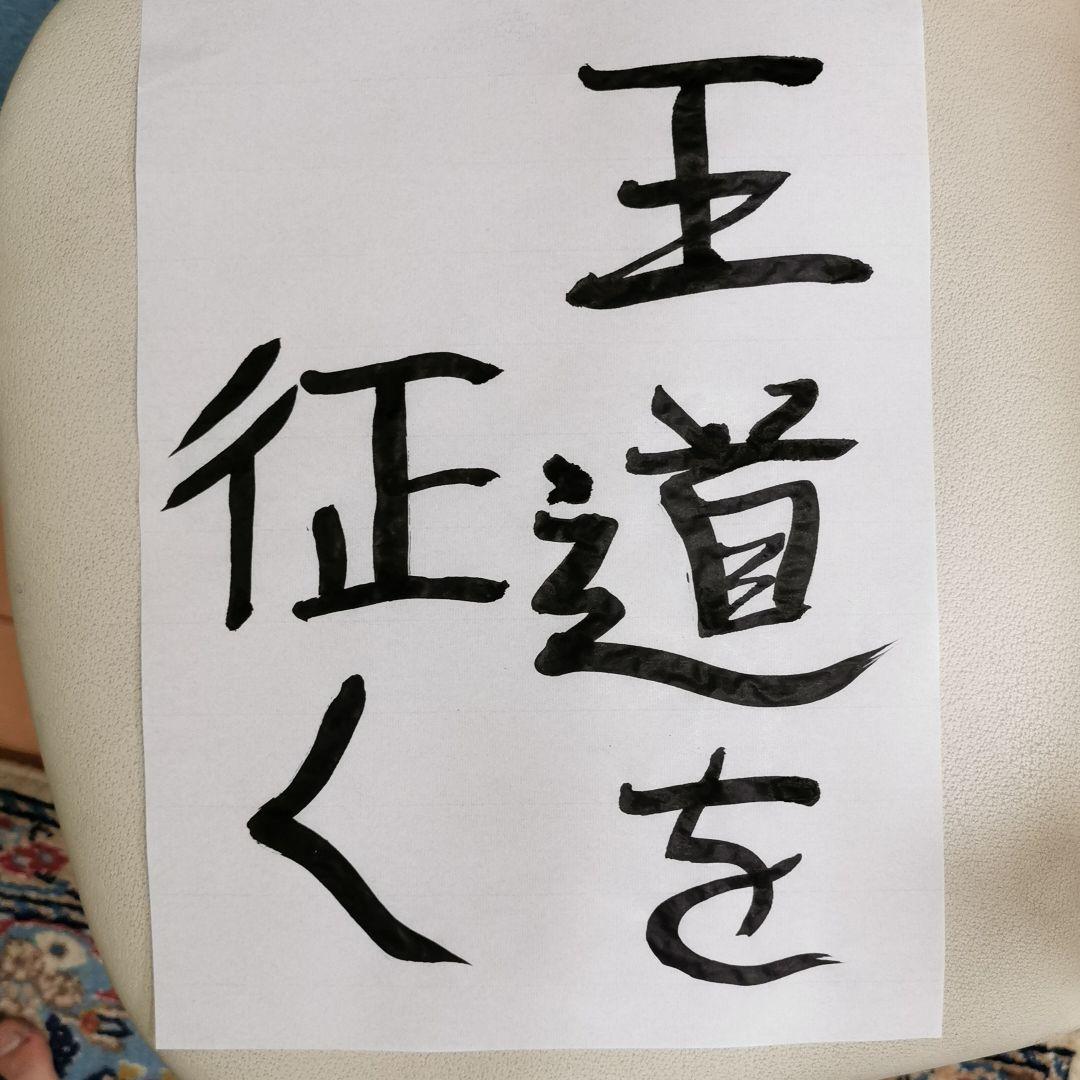 王道を
征く